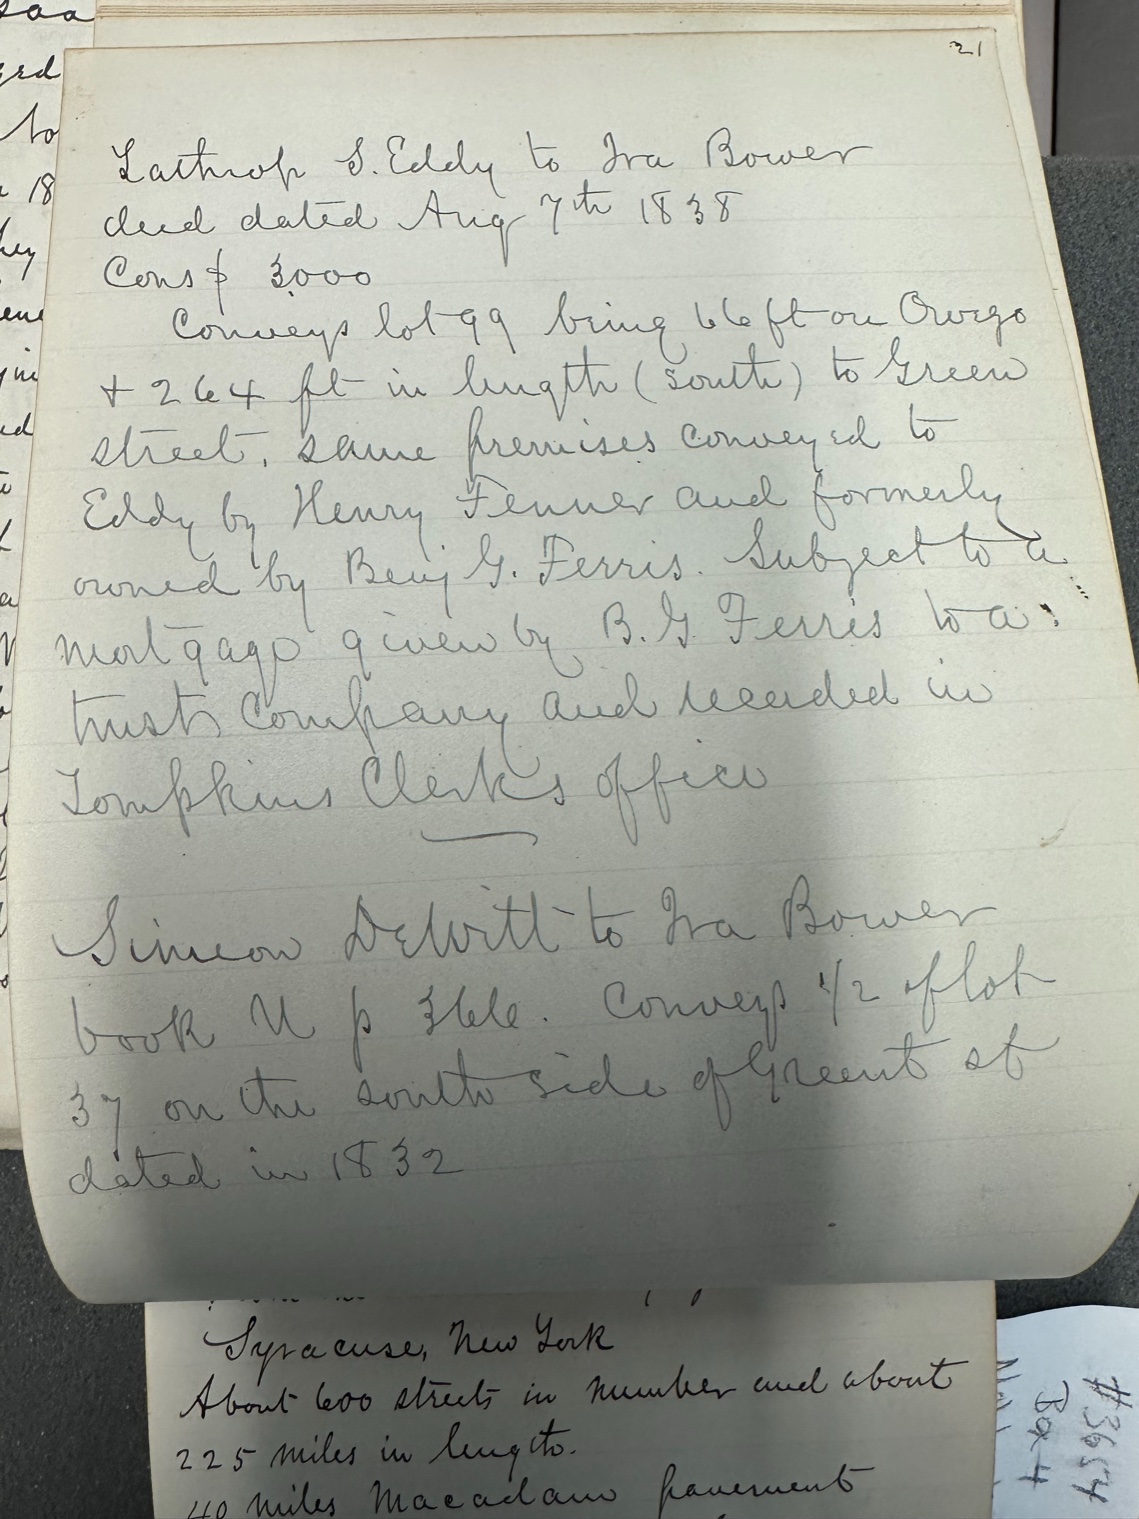 21
Lathrop S. Eddy to Ira Bower
deed dated Aug 7th 1838
Cons $ 3000
Conveys lot 99 being 66 ft on Owego
+ 264 ft in length (south) to Green
street, same premises conveyed to
Eddy by Henry Fenner and formerly
owned by Benj G. Ferris. Subject to a
mortgage given by B. G. Ferris to a
trust company and recorded in
Tompkins Clerk's office
Simeon DeWitt to Ira Bower
book U p 366. Conveys 1/2 of lot
37 on the south side of Green st
dated in 1832
Syracuse, New York
About 600 streets in number and about
225 miles in length.
40 miles Macadam pavement
#3654
Box 4